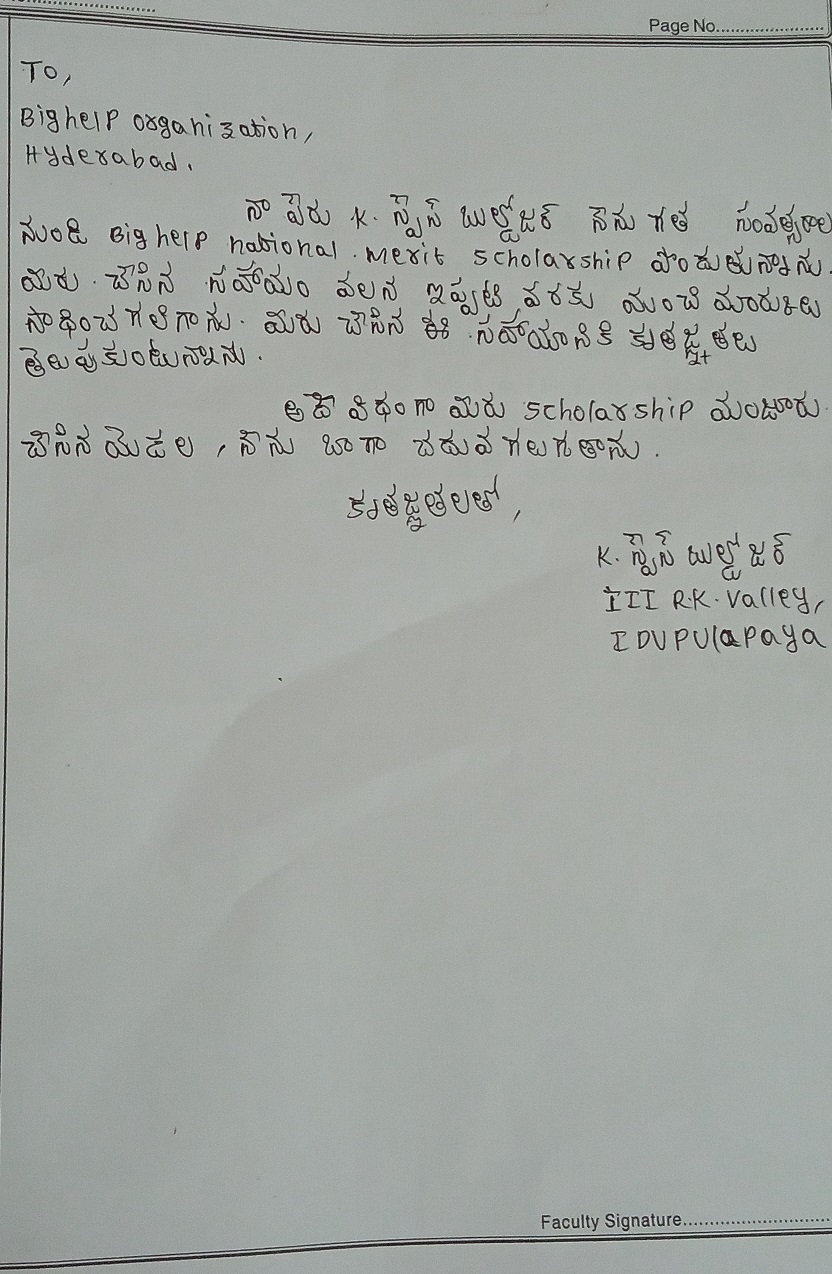 Page No.
To,
Bighelp organization,
Hyderabad.
నా పేరు K. స్వైన్ బుల్డోజర్ నేను గత సంవత్సరాల
నుండి Big help national merit scholarship పొందుతున్నాను.
మీరు చేసిన సహాయం వలన ఇప్పటి వరకు మంచి మార్కులు
సాధించ గలిగాను. మీరు చేసిన ఈ సహాయానికి కృతజ్ఞతలు
తెలుపుకుంటున్నాను.
అదే విధంగా మీరు scholarship మంజూరు
చేసిన యెడల, నేను బాగా చదువ గలుగతాను.
కృతజ్ఞతలతో,
K. స్వైన్ బుల్డోజర్
III R.K. Valley,
IDUPULAPAYA
Faculty Signature